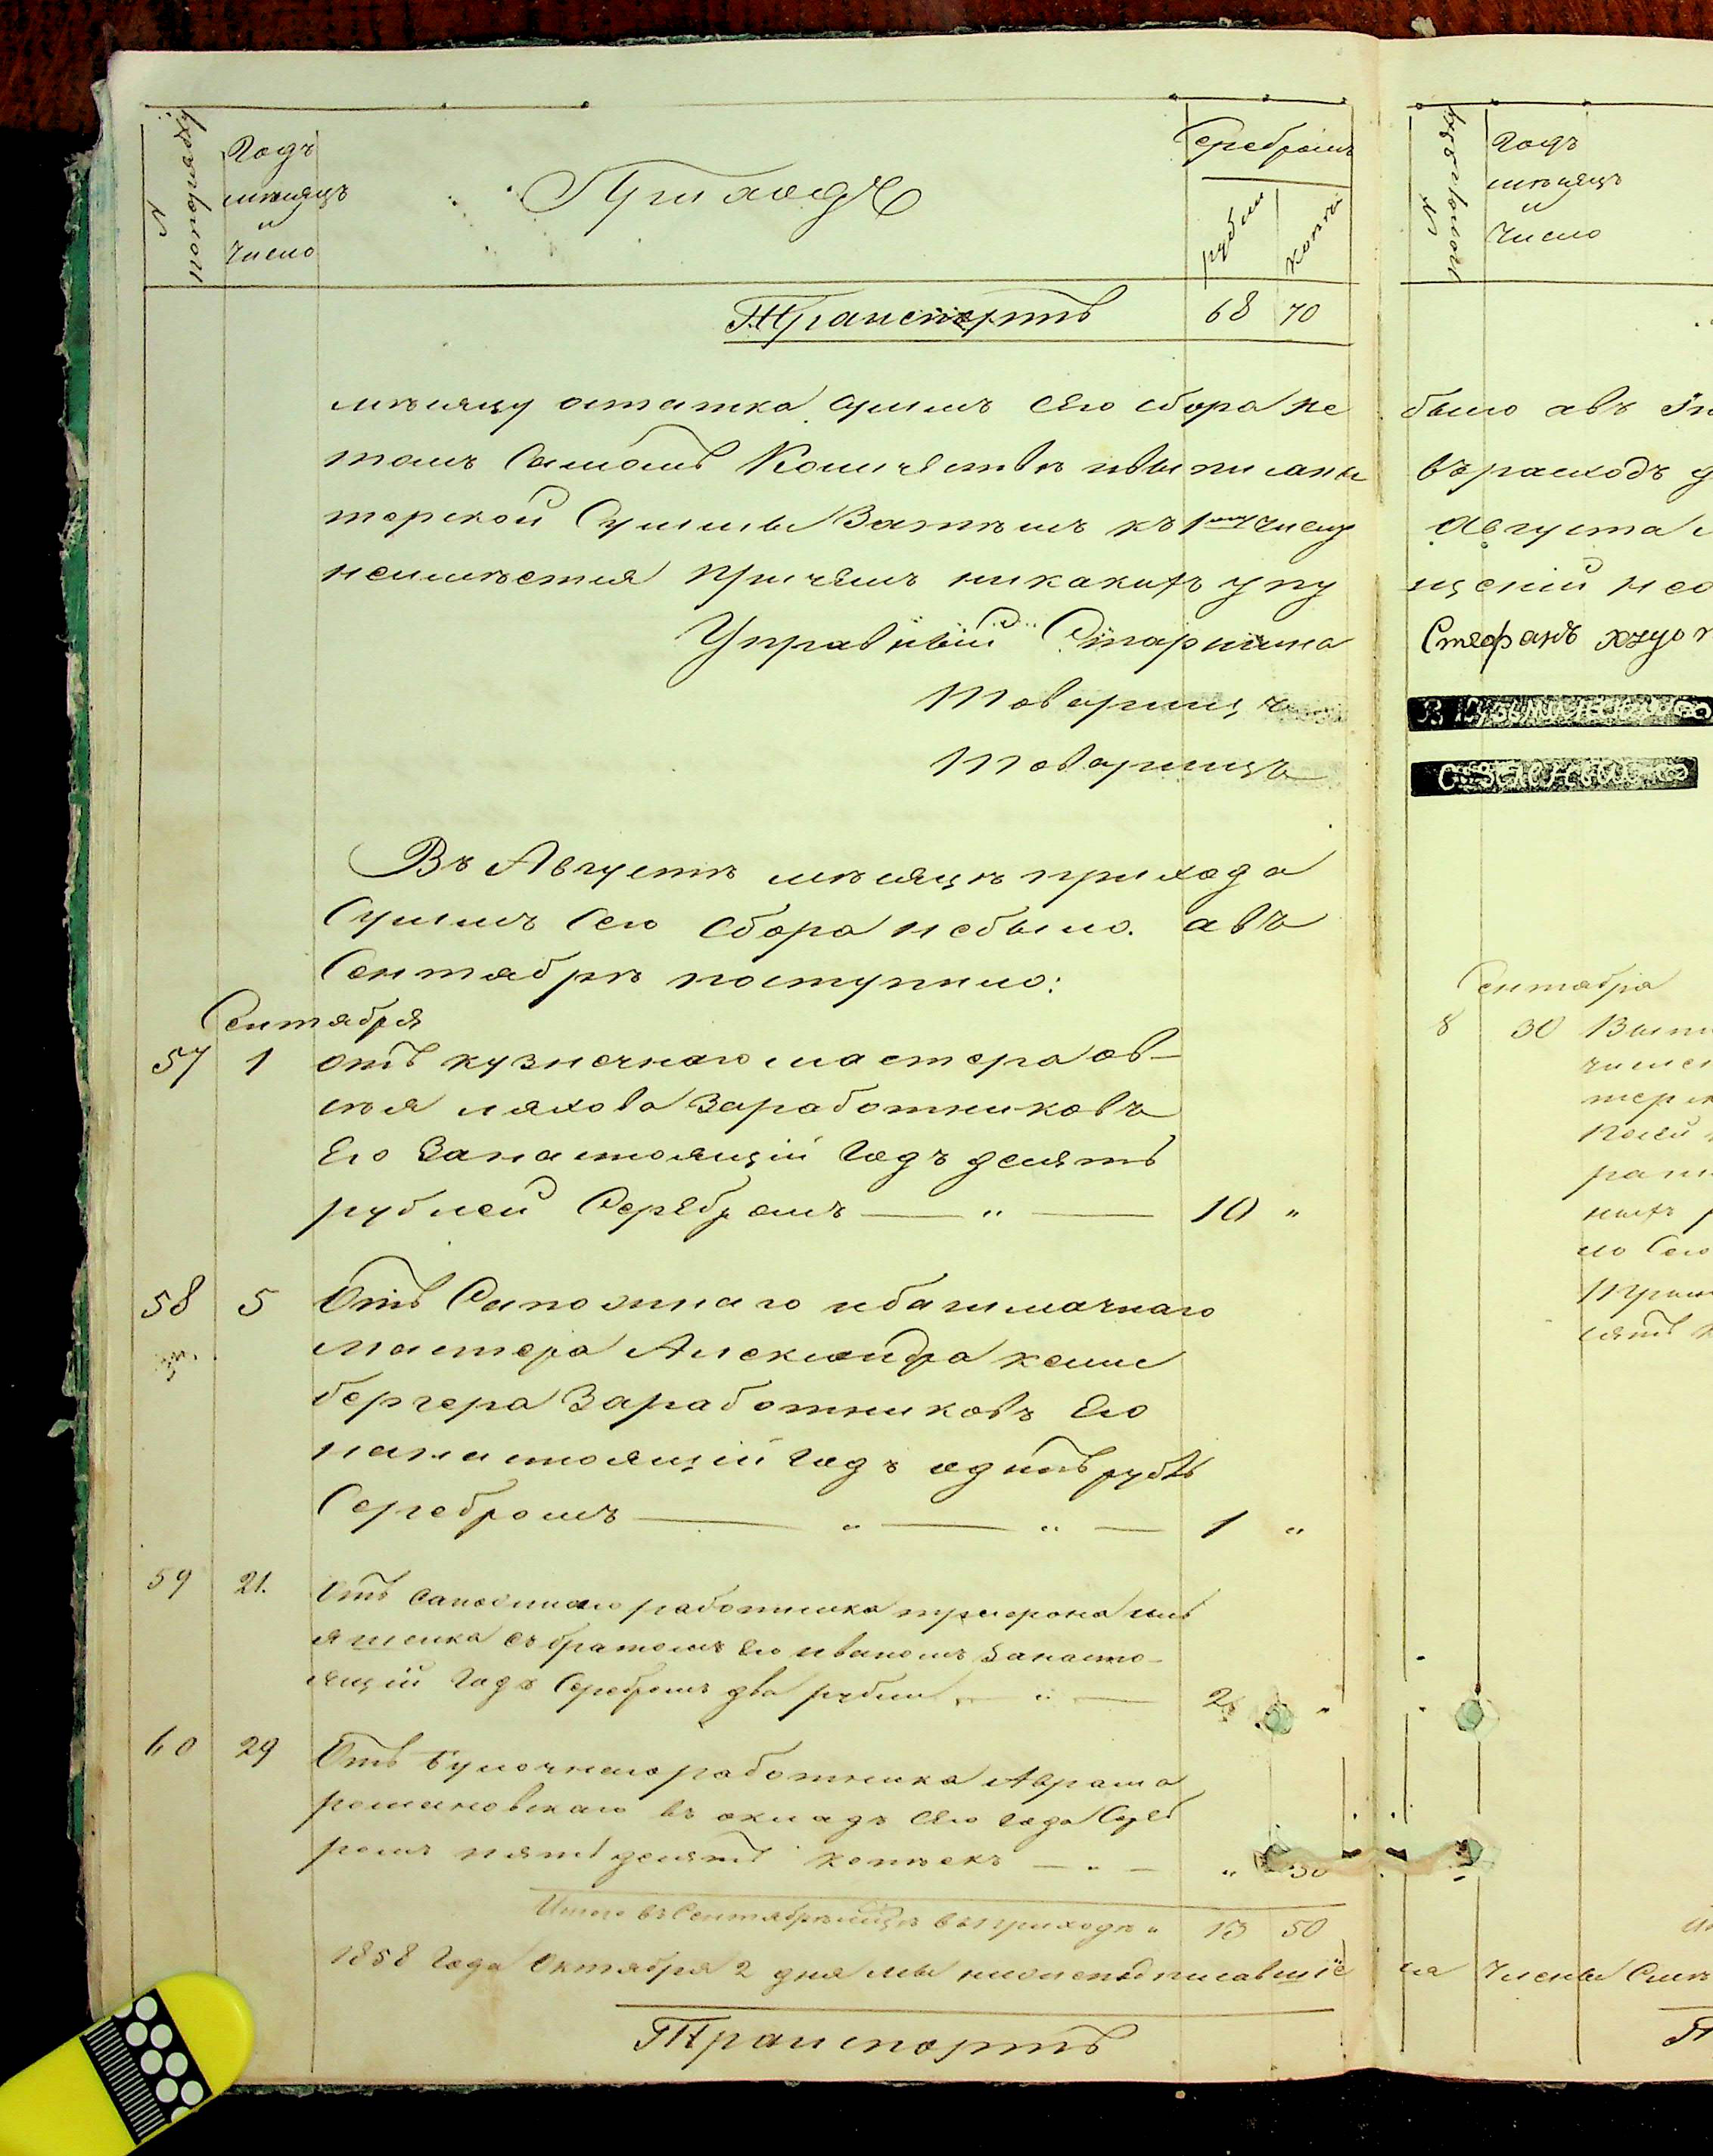 №
по порядку
Годъ
мѣсяцъ
и
Число
Приходъ
Серебромъ
рубли
копѣй
Транспортъ 68 70
мѣсяцу остатка суммъ сего сбора не
томъ Самомъ Количествѣ и выписаны
терской Суммы Затѣмъ къ 1му числу
неимѣется причемъ никакихъ упу
Управный Старшина
Товарищъ
Товарищъ
Въ Августѣ мѣсяцѣ прихода
Суммъ Сего Сбора небыло. авъ
Сентябрѣ поступило:
Сентября
57 1 отъ кузнечнаго мастера ов-
сѣя ляхова Заработниковъ
Его Занастоящій Годъ десять
рублей Серебромъ — " — 10 "
58 5 Отъ Сапожнаго и башмачнаго
мастера Александра
бергера Заработниковъ Его
нанастоящій Годъ одинъ рубль
Серебромъ — " — " — 1 "
59 21. Отъ сапожнаго работника
съ братомъ Его иваномъ Занасто-
ящій Годъ Серебромъ два рубли — " — 2 "
60 29 Отъ Булочнаго работника Абрама
романовскаго въ окладъ сего года Сереб
ромъ пятьдесятъ копѣекъ — " — " 50
Итого въ Сентябрѣ мѣцѣ въ приходѣ " 13 50
1858 Года Октября 2 дня мы нижеподписавшіе
Транспортъ
№
по порядку
Годъ
мѣсяцъ
и
Число
было авъ
въ расходъ
Августа
щеній
Стефанъ
Сентября
8 30
Сего
ся Члены